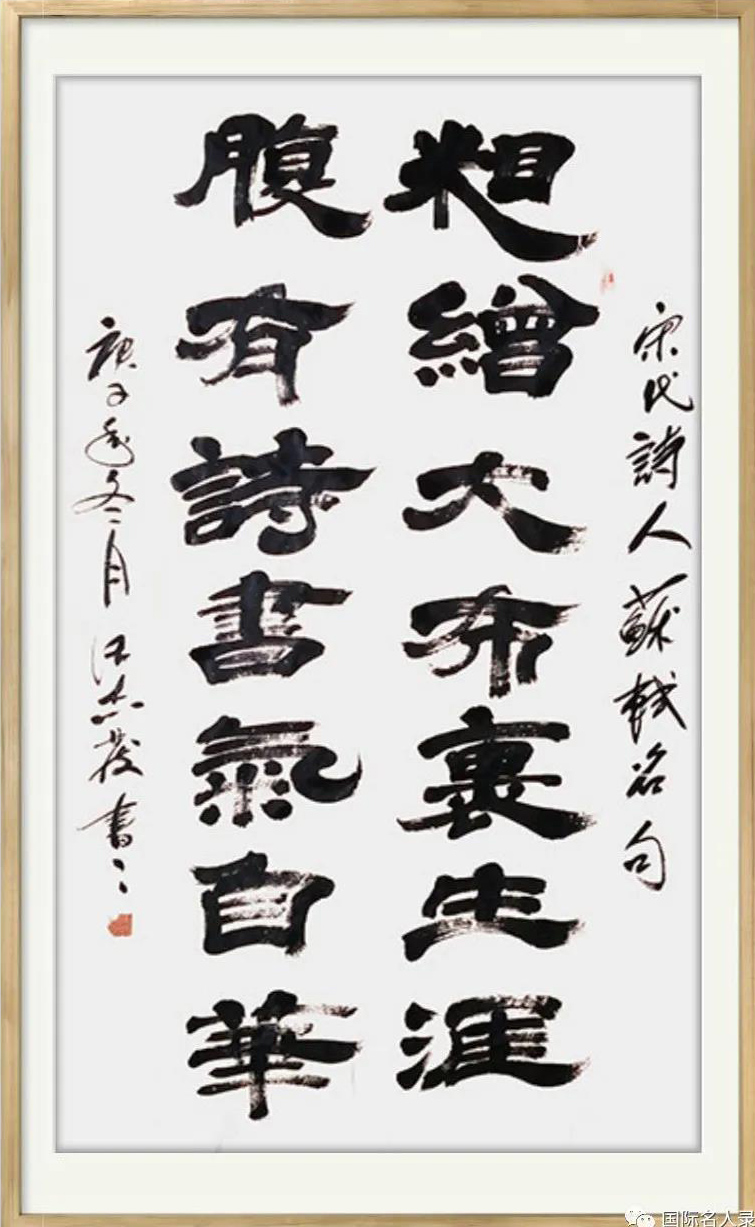 宋代詩人蘇軾名句
粗繒大布裹生涯
腹有詩書氣自華
庚子年冬月汪志發書
国际名人录